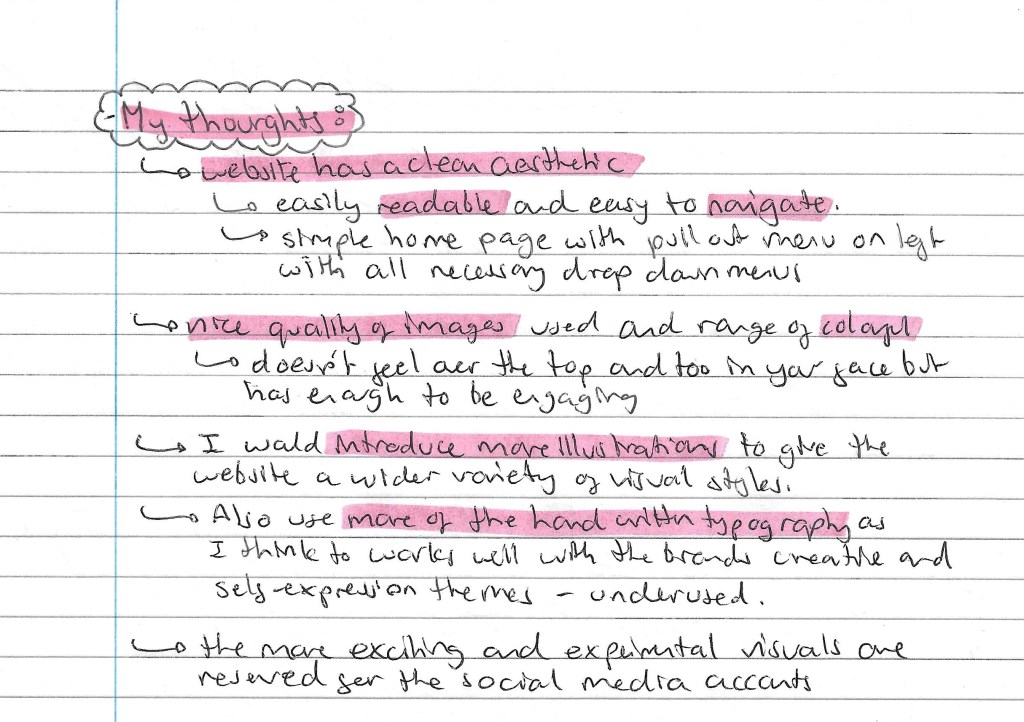 - My thourghts :
↳ website has a clean aesthetic
↳ easily readable and easy to navigate.
↳ simple home page with pull out menu on left
with all necessary drop down menus
↳ nice quality of images used and range of colourful
↳ doesn't feel over the top and too in your face but
has enough to be engaging
↳ I would introduce more illustrations to give the
website a wider variety of visual styles.
↳ Also use more of the hand written typography as
I think to works well with the brands creative and
self-expression themes - underused.
↳ the more exciting and experimental visuals are
reserved for the social media accounts